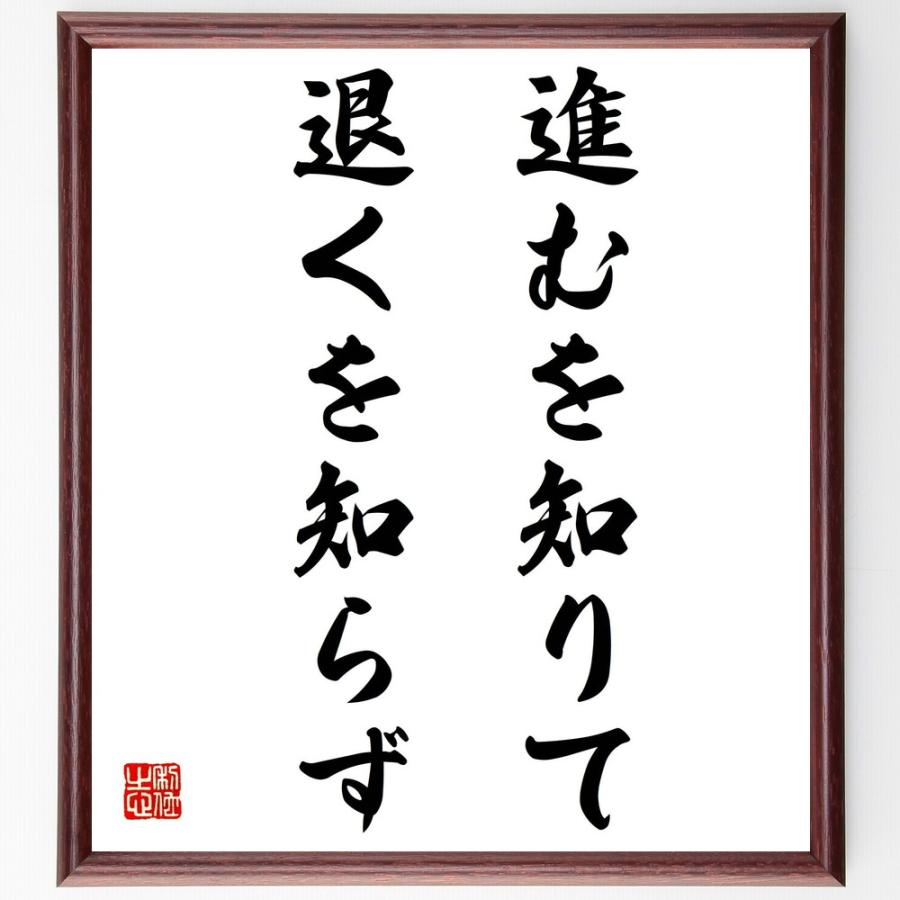 進むを知りて
退くを知らず